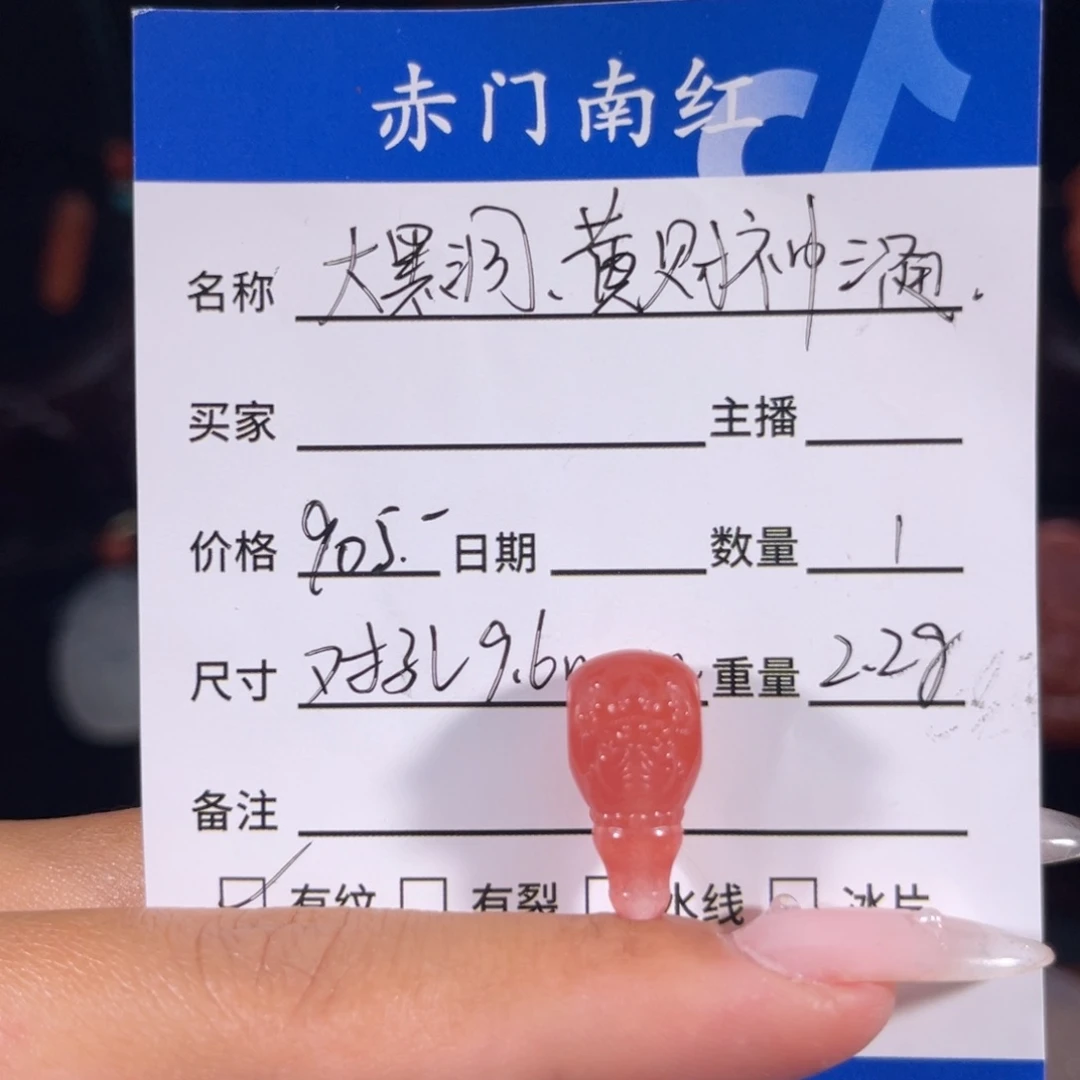 赤门南红
名称 大黑洞、黄财神涌.
买家 主播
价格 905.- 日期 数量 1
尺寸 对孔9.6 重量 2.2g
备注
有纹 有裂 水线 冰片